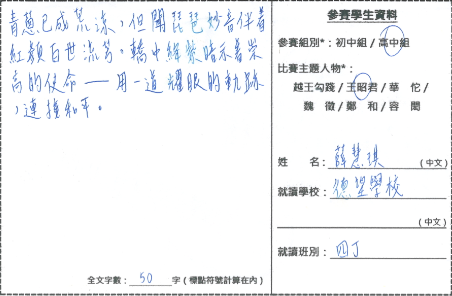 青蔥已成荒涼，但聞琵琶妙音伴着
紅顏百世流芳，轎中綽綽暗示着崇
高的使命——用一道耀眼的軌跡
，連接和平。
全文字數： 50 字（標點符號計算在內）
參賽學生資料
參賽組別*：初中組 / 高中組
比賽主題人物*：
越王勾踐 / 王昭君 / 華 佗 /
魏 徵 / 鄭 和 / 容 閎
姓 名： 薛慧琪 （中文）
就讀學校： 德望學校
（中文）
就讀班別： 四丁